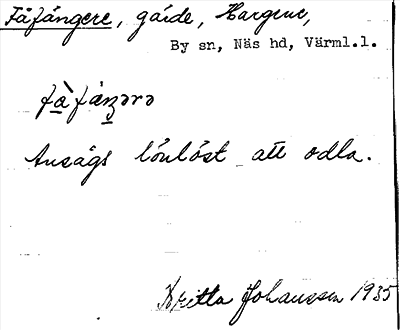 Fåfångere, gärde, Hargene,
By sn, Näs hd, Värml.l.
fà̱fåŋ̱ərə
Ansågs lönlöst att odla.
Britta Johansson 1935